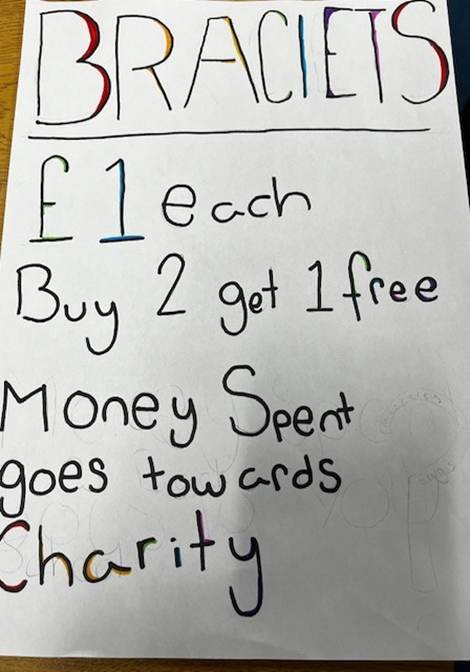 BRACIETS
£1 each
Buy 2 get 1 free
Money Spent
goes towards
Charity